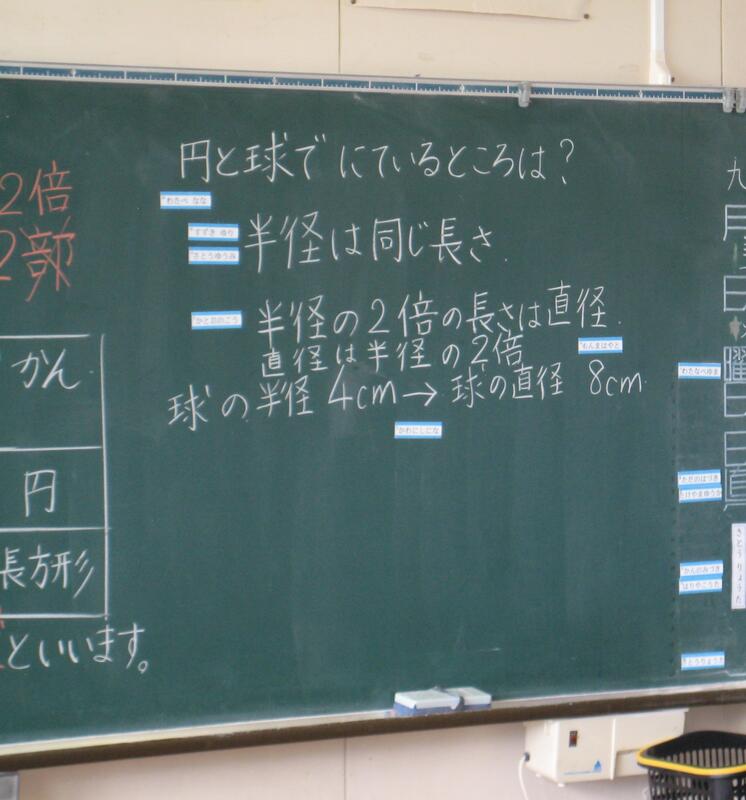 円と球でにているところは?
わたべ なな
すずき ゆり
半径は同じ長さ.
さとうゆうみ
半径の2倍の長さは直径.
直径は半径の2倍
球の半径 4cm→球の直径 8cm.
かわにしにな
わたなべゆま
2倍
2部
かん
円
長方形
といいます。
九
月
日
曜
日
日
直
さとうりょうた